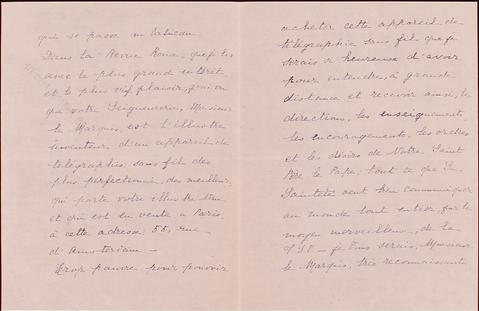 qui se passe au Vatican
Dans la Revue Rome, que je lis
avec le plus grand intérêt,
et le plus vif plaisir, j'ai vu
que votre Seigneurie, Monsieur
le Marquis, est l'illustre
inventeur d'un appareil de
télégraphie sans fil des
plus perfectionnés, des meilleurs,
qui porte votre illustre nom
et qui est en vente à Paris,
à cette adresse: 55, rue
d'Amsterdam -
Trop pauvre pour pouvoir
acheter cette appareil de
télégraphie sans fil que je
serais si heureuse d'avoir
pour entendre, à grande
distance et recevoir ainsi, les
directions, les enseignements,
les encouragements, les ordres
et les désirs de Notre Saint
Père le Pape; tout ce que Sa
Sainteté veut bien communiquer
au monde tout entier, par le
moyen merveilleux, de la
- je vous serais, Monsieur
le Marquis, très reconnaissante